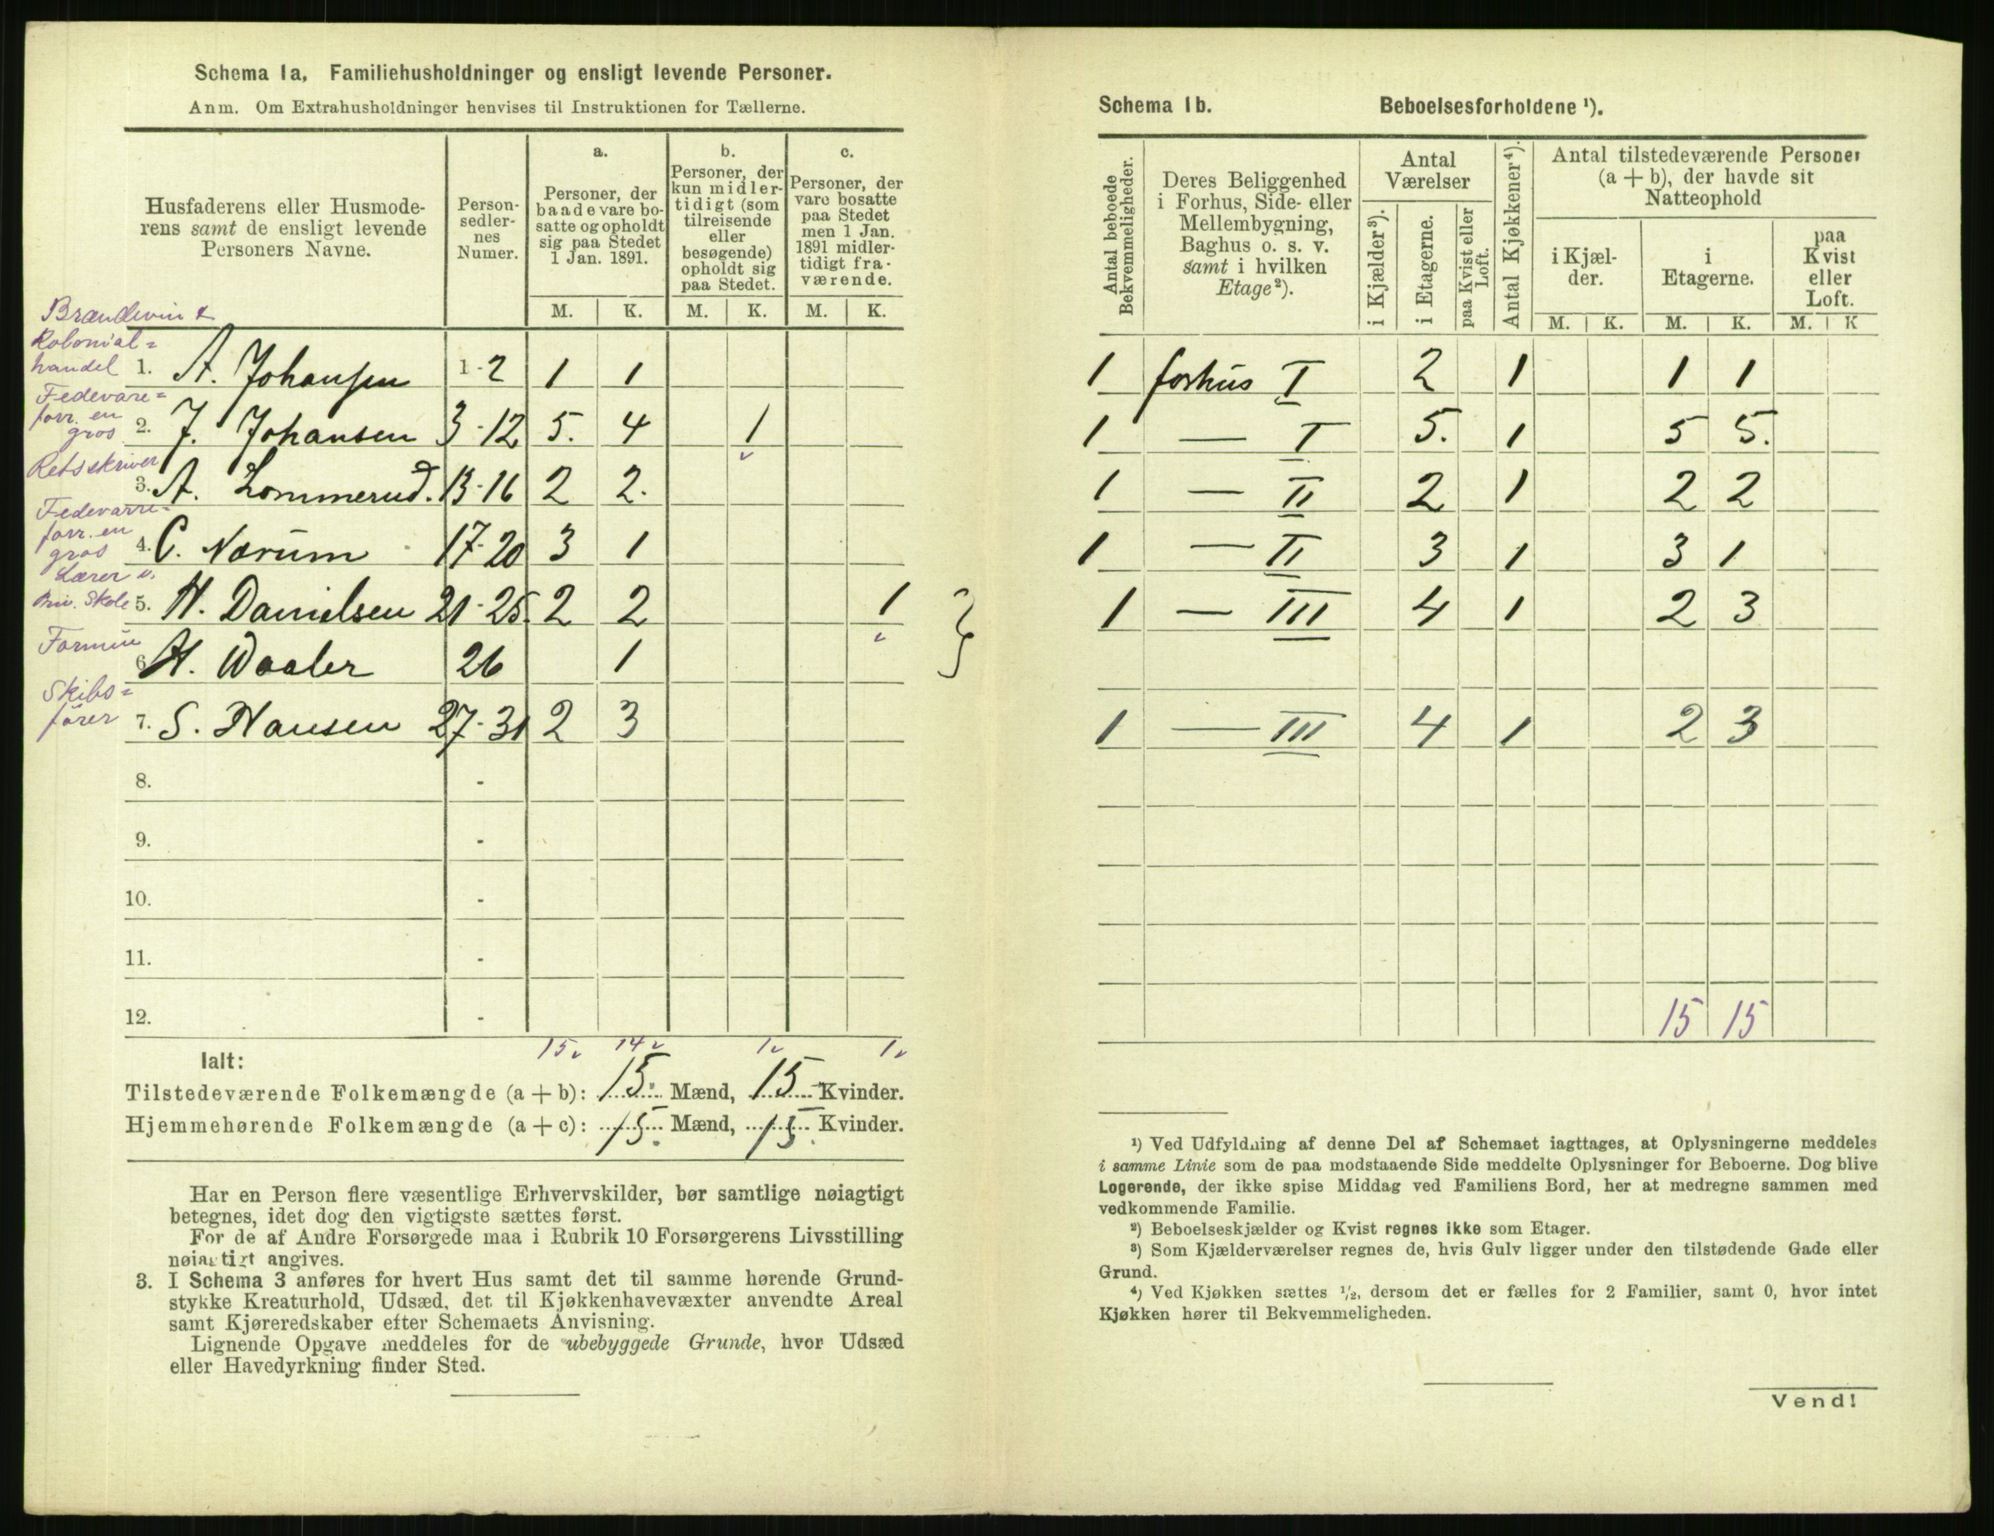 Schema 1a, Familiehusholdninger og ensligt levende Personer.
Anm. Om Extrahusholdninger henvises til Instruktionen for Tællerne.
Husfaderens eller Husmode-
rens samt de ensligt levende
Personers Navne.
Person-
sedler-
nes
Numer.
a.
Personer, der
baade vare bo-
satte og opholdt
sig paa Stedet
1 Jan. 1891.
b.
Personer, der
kun midler-
tidigt (som
tilreisende
eller
besøgende)
opholdt sig
paa Stedet.
c.
Personer, der
vare bosatte
paa Stedet
men 1 Jan.
1891 midler-
tidigt fra-
værende.
M. K. M. K. M. K.
Brændevin &
Kolonial=
handel 1. A. Johansen 1-2 1 1
Fedevare=
forr. en
gros 2. J. Johansen 3-12 5. 4 1
Retsskriver
3. A. Lommerud. 13-16 2 2.
Fedevarre=
forr. en
gros 4. C. Nærum 17-20 3 1
Lærer v.
Priv. Skole 5. H. Danielsen 21-25. 2 2 1
Formue
6. H. Waaler 26 1
Skibs=
fører 7. S. Hansen 27-31 2 3
8. -
9. -
10. -
11. -
12. -
15 14 1 1
Ialt:
Tilstedeværende Folkemængde (a + b): 15. Mænd, 15 Kvinder.
Hjemmehørende Folkemængde (a + c): 15. Mænd, 15. Kvinder.
Har en Person flere væsentlige Erhvervskilder, bør samtlige nøiagtigt
betegnes, idet dog den vigtigste sættes først.
For de af Andre Forsørgede maa i Rubrik 10 Forsørgerens Livsstilling
nøiagtigt angives.
3. I Schema 3 anføres for hvert Hus samt det til samme hørende Grund-
stykke Kreaturhold, Udsæd, det til Kjøkkenhavevæxter anvendte Areal
samt Kjøreredskaber efter Schemaets Anvisning.
Lignende Opgave meddeles for de ubebyggede Grunde, hvor Udsæd
eller Havedyrkning finder Sted.
Schema 1b. Beboelsesforholdene ¹).
Antal beboede
Bekvemmeligheder.
Deres Beliggenhed
i Forhus, Side- eller
Mellembygning,
Baghus o. s. v.
samt i hvilken
Etage²).
Antal
Værelser
i Kjælder³).
i Etagerne.
paa Kvist eller
Loft.
Antal Kjøkkener⁴).
Antal tilstedeværende Personer
(a + b), der havde sit
Natteophold
i Kjæl-
der.
i
Etagerne.
paa
Kvist
eller
Loft.
M. K. M. K. M. K
1 forhus I 2 1 1 1
1 — I 5. 1 5 5.
1 — II 2 1 2 2
1 — II 3 1 3 1
1 — III 4 1 2 3
1 — III 4 1 2 3
15 15
¹) Ved Udfyldning af denne Del af Schemaet iagttages, at Oplysningerne meddeles
i samme Linie som de paa modstaaende Side meddelte Oplysninger for Beboerne. Dog blive
Logerende, der ikke spise Middag ved Familiens Bord, her at medregne sammen med
vedkommende Familie.
²) Beboelseskjælder og Kvist regnes ikke som Etager.
³) Som Kjælderværelser regnes de, hvis Gulv ligger under den tilstødende Gade eller
Grund.
⁴) Ved Kjøkken sættes ½, dersom det er fælles for 2 Familier, samt 0, hvor intet
Kjøkken hører til Bekvemmeligheden.
Vend!